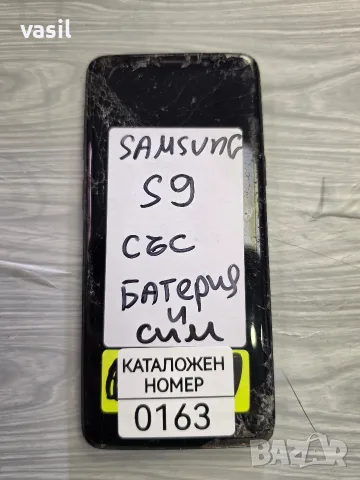 vasil
SAMSUNG
S9
със
БАТЕРИЯ
и
сим
КАТАЛОЖЕН
НОМЕР
0163
BAZAR